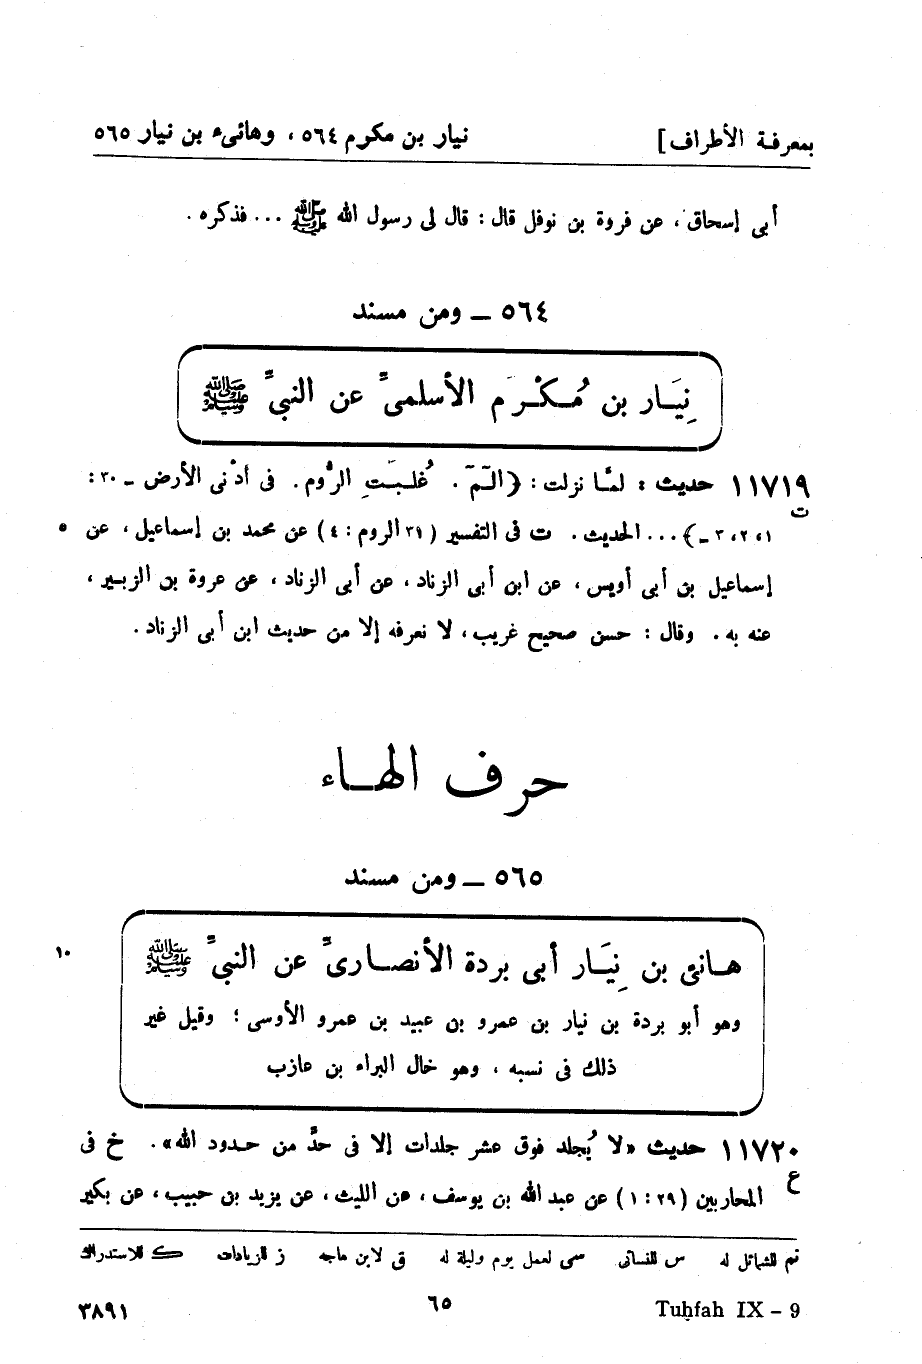 بمعرفة الأطراف] نيار بن مكرم ٥٦٤ ، وهانىء بن نيار ٥٦٥
أبى إسحاق ، عن فروة بن نوفل قال : قال لى رسول الله ﷺ ... فذكره .
٥٦٤ ــ ومن مسند
نِيَـار بن مُـكْـرم الأسلمىِّ عن النبىِّ ﷺ
١١٧١٩ حديث : لمَّـا نزلت : ﴿الـٓمٓ . غُلـبـَتِ الرُّوم . فى أدْنى الأرض ــ ٣٠ :
ت
١ ، ٢ ، ٣ ــ﴾ ... الحديث . ت فى التفسير (٣١ الروم : ٤) عن محمد بن إسماعيل ، عن ٥
إسماعيل بن أبى أويس ، عن ابن أبى الزناد ، عن أبى الزناد ، عن عروة بن الزبـير ،
عنه به . وقال : حسن صحيح غريب ، لا نعرفه إلا من حديث ابن أبى الزناد .
حرف الهـاء
٥٦٥ ــ ومن مسند
هـانئ بن نِيَـار أبى بردة الأنصـارىِّ عن النبىِّ ﷺ ١٠
وهو أبو بردة بن نيار بن عمرو بن عبيد بن عمرو الأوسى ؛ وقيل غير
ذلك فى نسبه ، وهو خال البراء بن عازب
١١٧٢٠ حديث «لا يُجلد فوق عشر جلدات إلا فى حدَّ من حـدود الله» . خ فى
ع
المحاربين (٢٩ : ١) عن عبد الله بن يوسف ، عن الليث ، عن يزيد بن حبيب ، عن بكير
تم للشمائل له س للنسائى سى لعمل يوم وليلة له ق لابن ماجه ز للزيادات ك للاستدراك
Tuḥfah IX – 9 ٦٥ ٣٨٩١